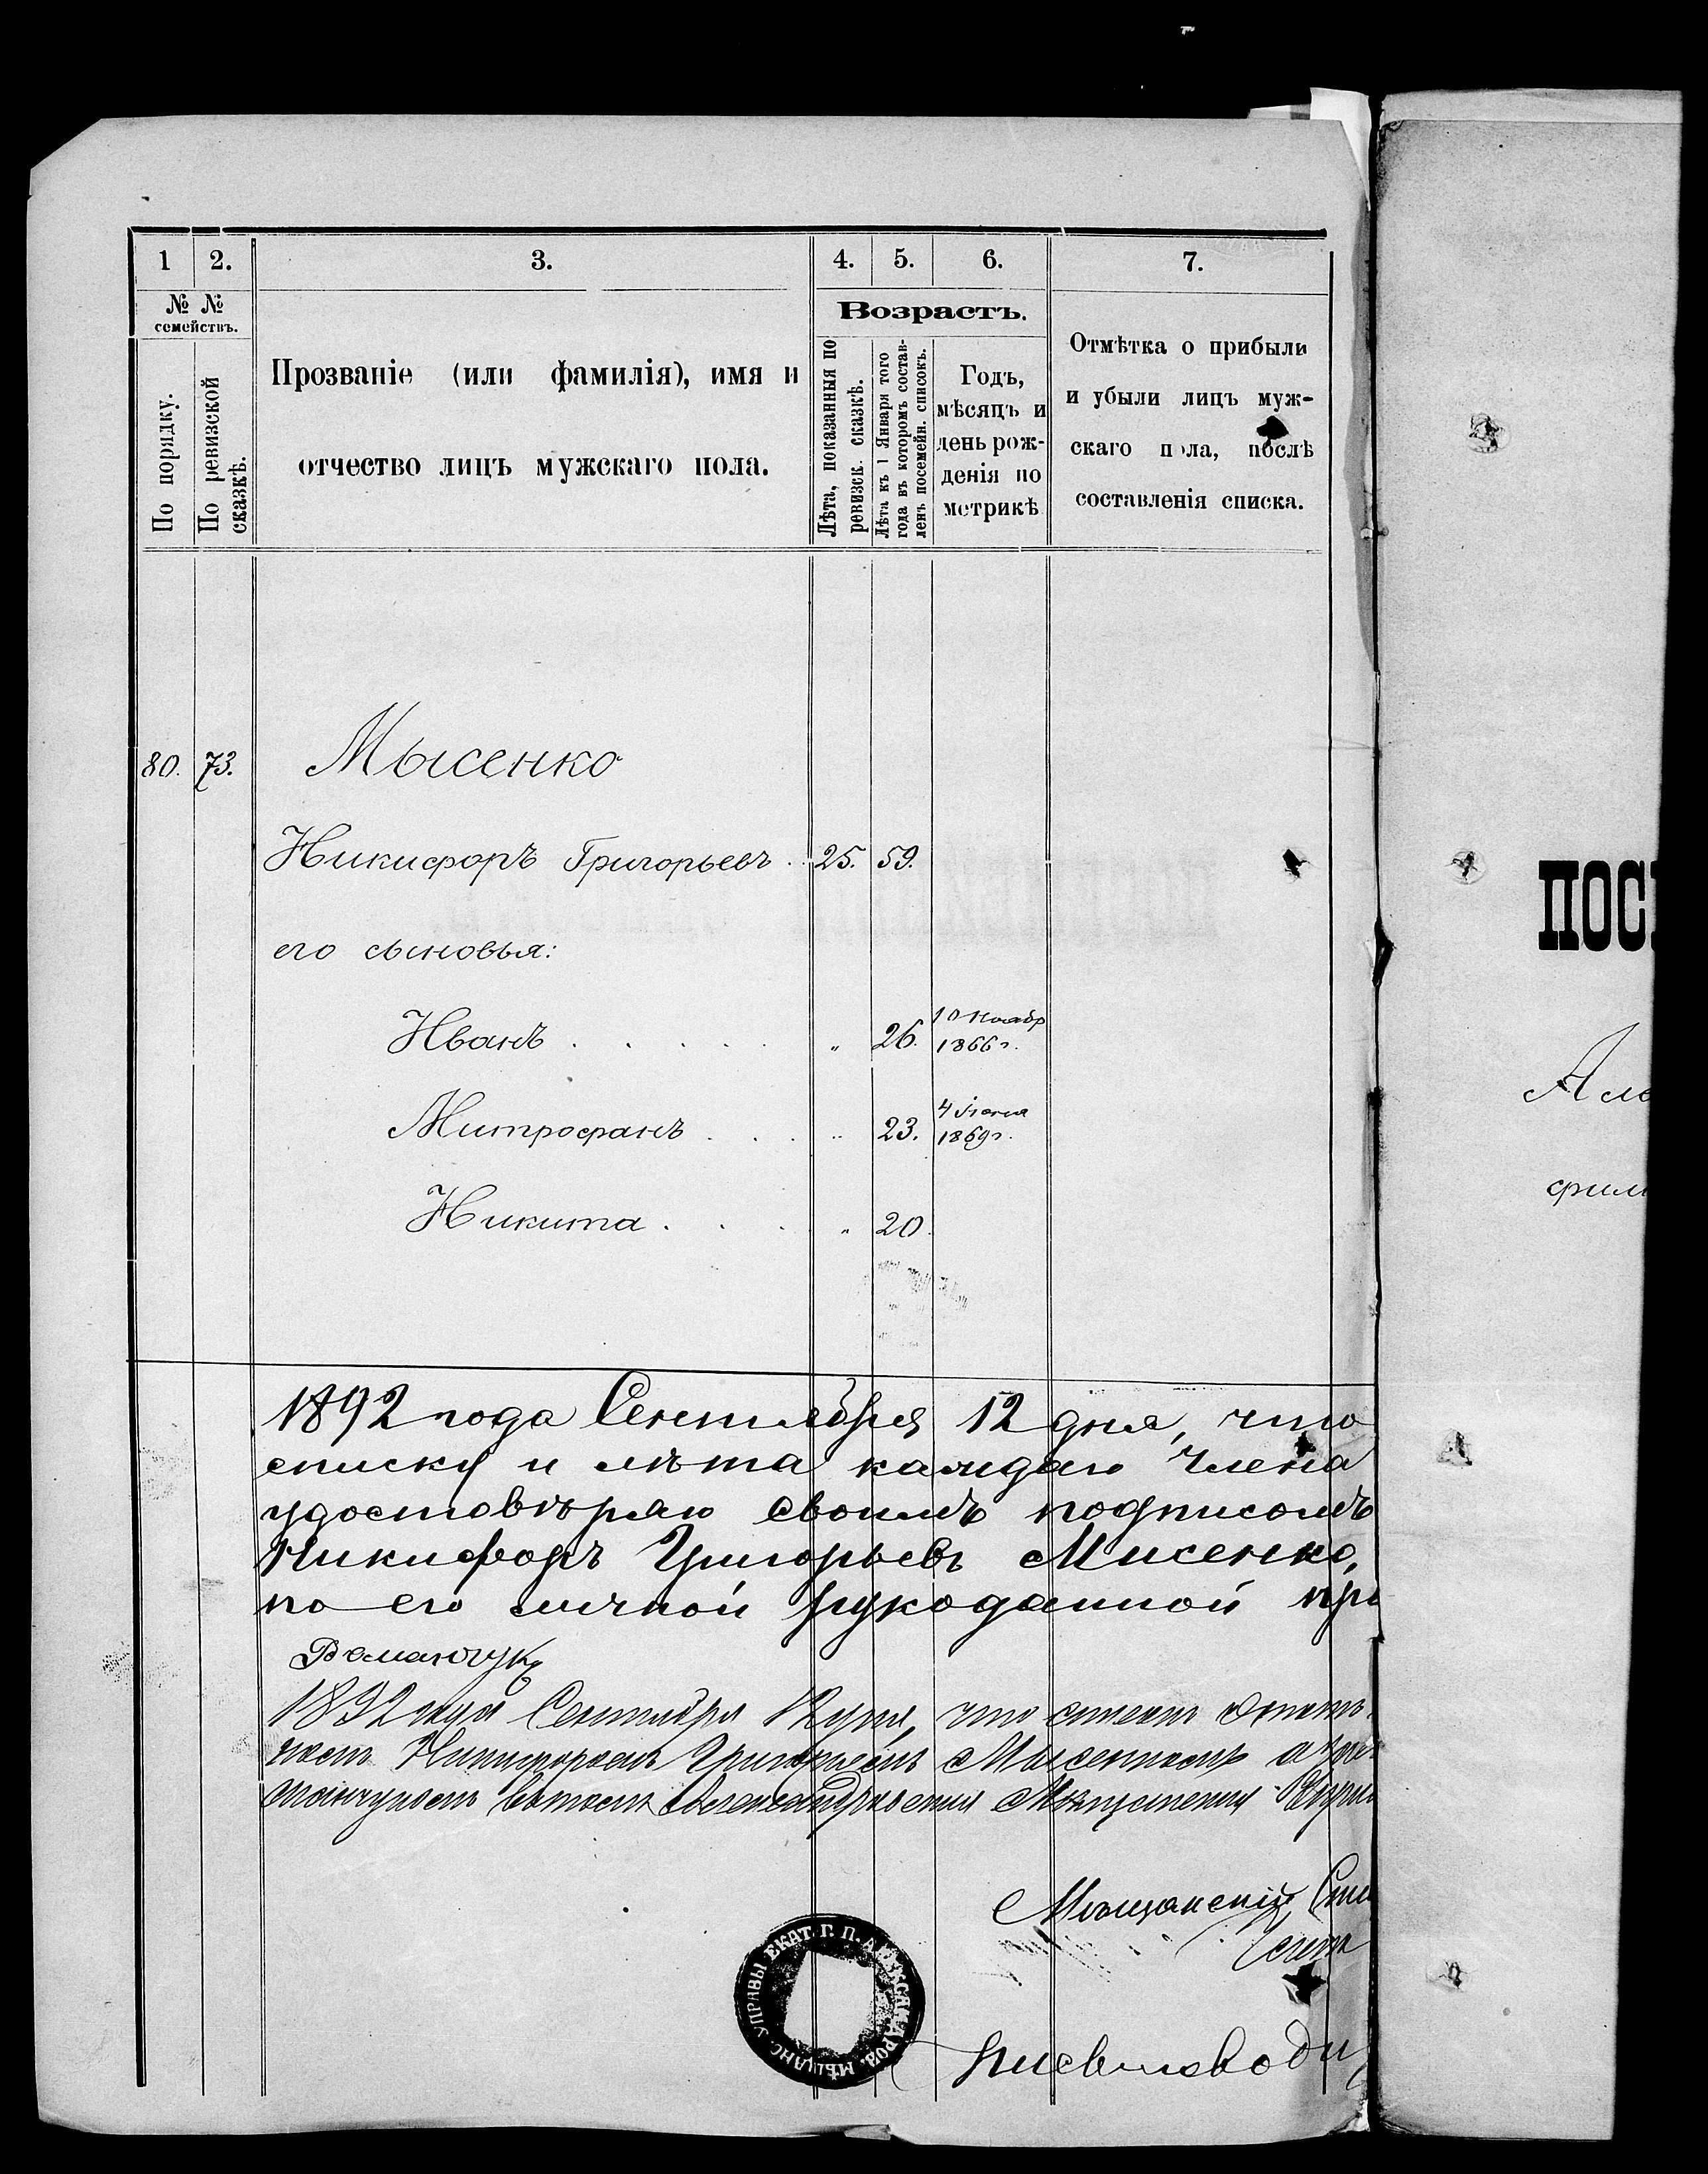 1 2. 3. 4. 5. 6. 7.
№ № семействъ.
По порядку.
По ревизской сказкѣ.
Прозваніе (или фамилія), имя и
отчество лицъ мужскаго пола.
Возрастъ.
Лѣта, показанныя по ревизск. сказкѣ.
Лѣта къ 1 Января того года въ которомъ составленъ посемейн. списокъ.
Годъ,
мѣсяцъ и
день рож-
денія по
метрикѣ
Отмѣтка о прибыли
и убыли лицъ муж-
скаго пола, послѣ
составленія списка.
80. 73. Мысенко
Никифоръ Григорьевъ 25. 59.
его сыновья:
Иванъ . . . . . „ 26. 10 Ноябр
1866 г.
Митрофанъ . . . „ 23. 4 Іюня
1869 г.
Никита . . . „ 20.
1892 года Сентября 12 дня, что
списку и лѣта каждаго члена
удостовѣряю своимъ подписомъ
Никифоръ Григорьевъ Мисенко,
по его личной рукоданной
Романчукъ
1892 года Сентября 12 дня, что
Никифоромъ Григорьевымъ Мысенкомъ
Александровской Мѣщанской
Мѣщанскій
УПРАВЫ ЕКАТ. Г. П. АЛЕКСАНДРОВ. МѢЩАНС.
ПОС
Але
фил